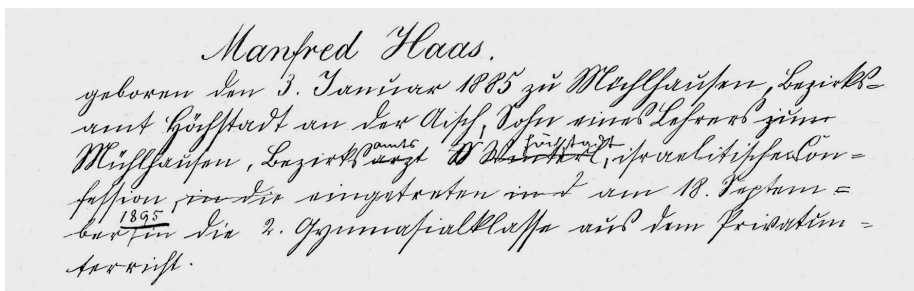 Manfred Haas.
geboren den 3. Januar 1885 zu Mühlhausen, Bezirks-
amt Höchstadt an der Aisch, Sohn eines Lehrers zum
amts Höchstadt
Mühlhausen, Bezirksarzt, israelitischer Con=
fession, in die eingetreten in d am 18. Septem=
1895
ber in die 2. Gymnasialklasse aus dem Privatun=
terricht.